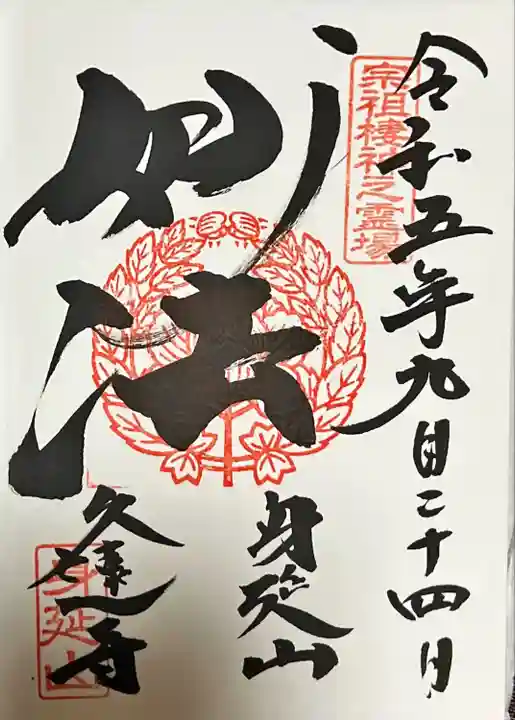 令和五年九月二十四日
宗祖棲神之霊場
妙法
身延山
久遠寺
身延山